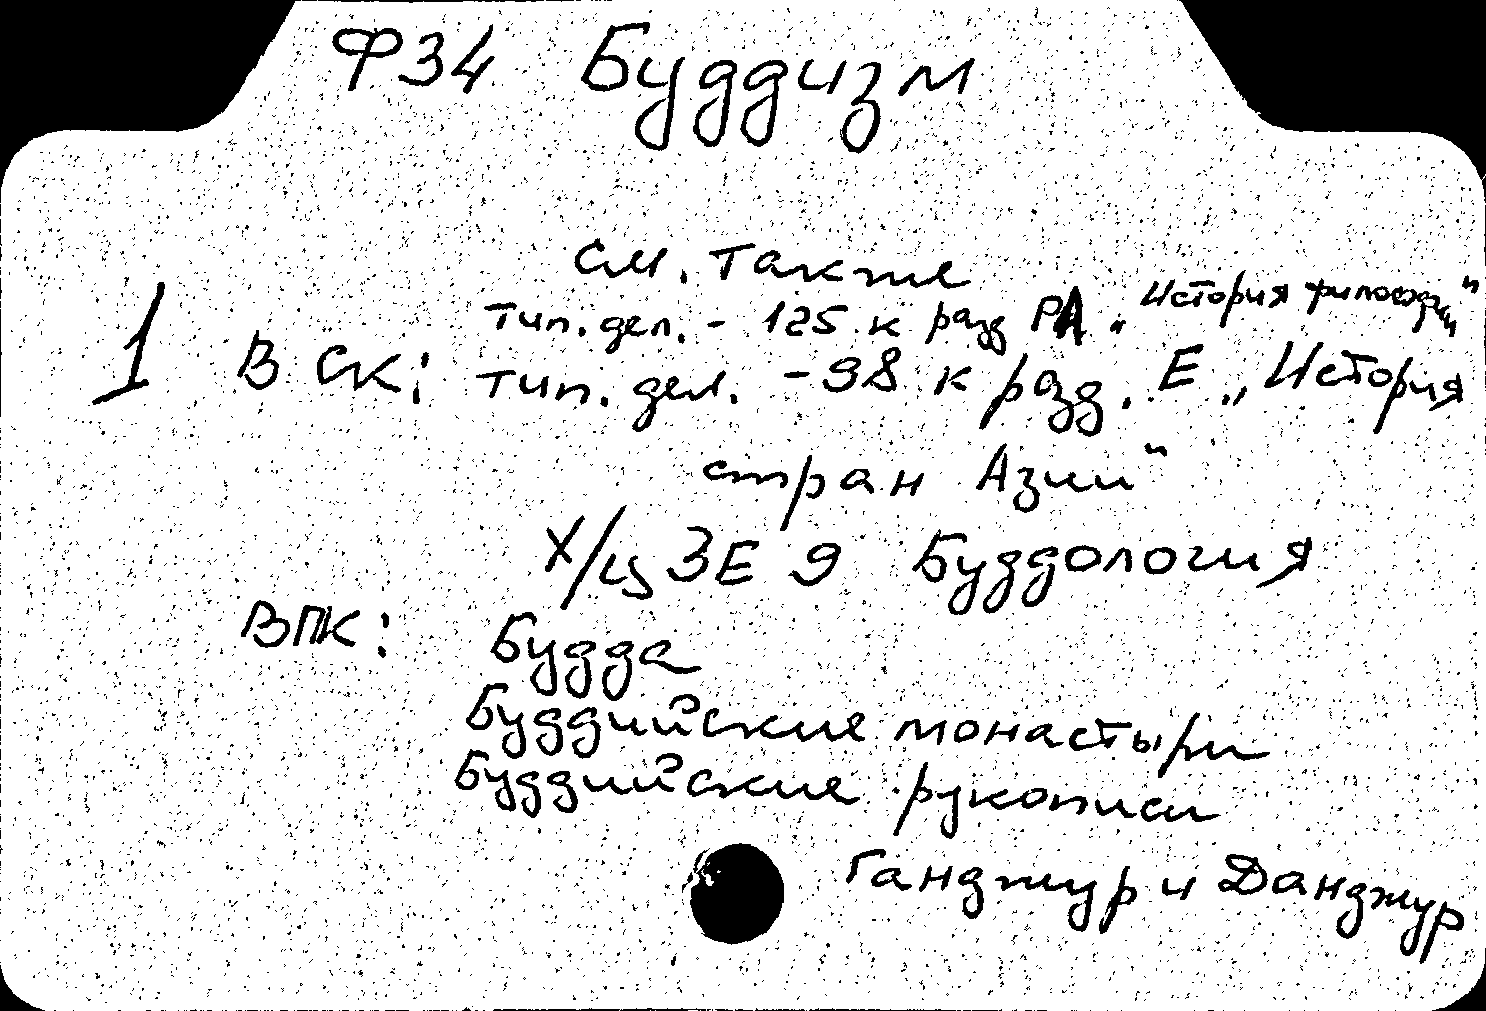 Ф34 Буддизм
см. также
тип. дел. - 125 к разд РА „История философии"
1 В СК: тип. дел. - 98 к разд. Е „История
стран Азии"
Х/ц ЗЕ 9 Буддология
ВПК: Будда
Буддийские монастыри
Буддийские рукописи
Ганджур и Данджур